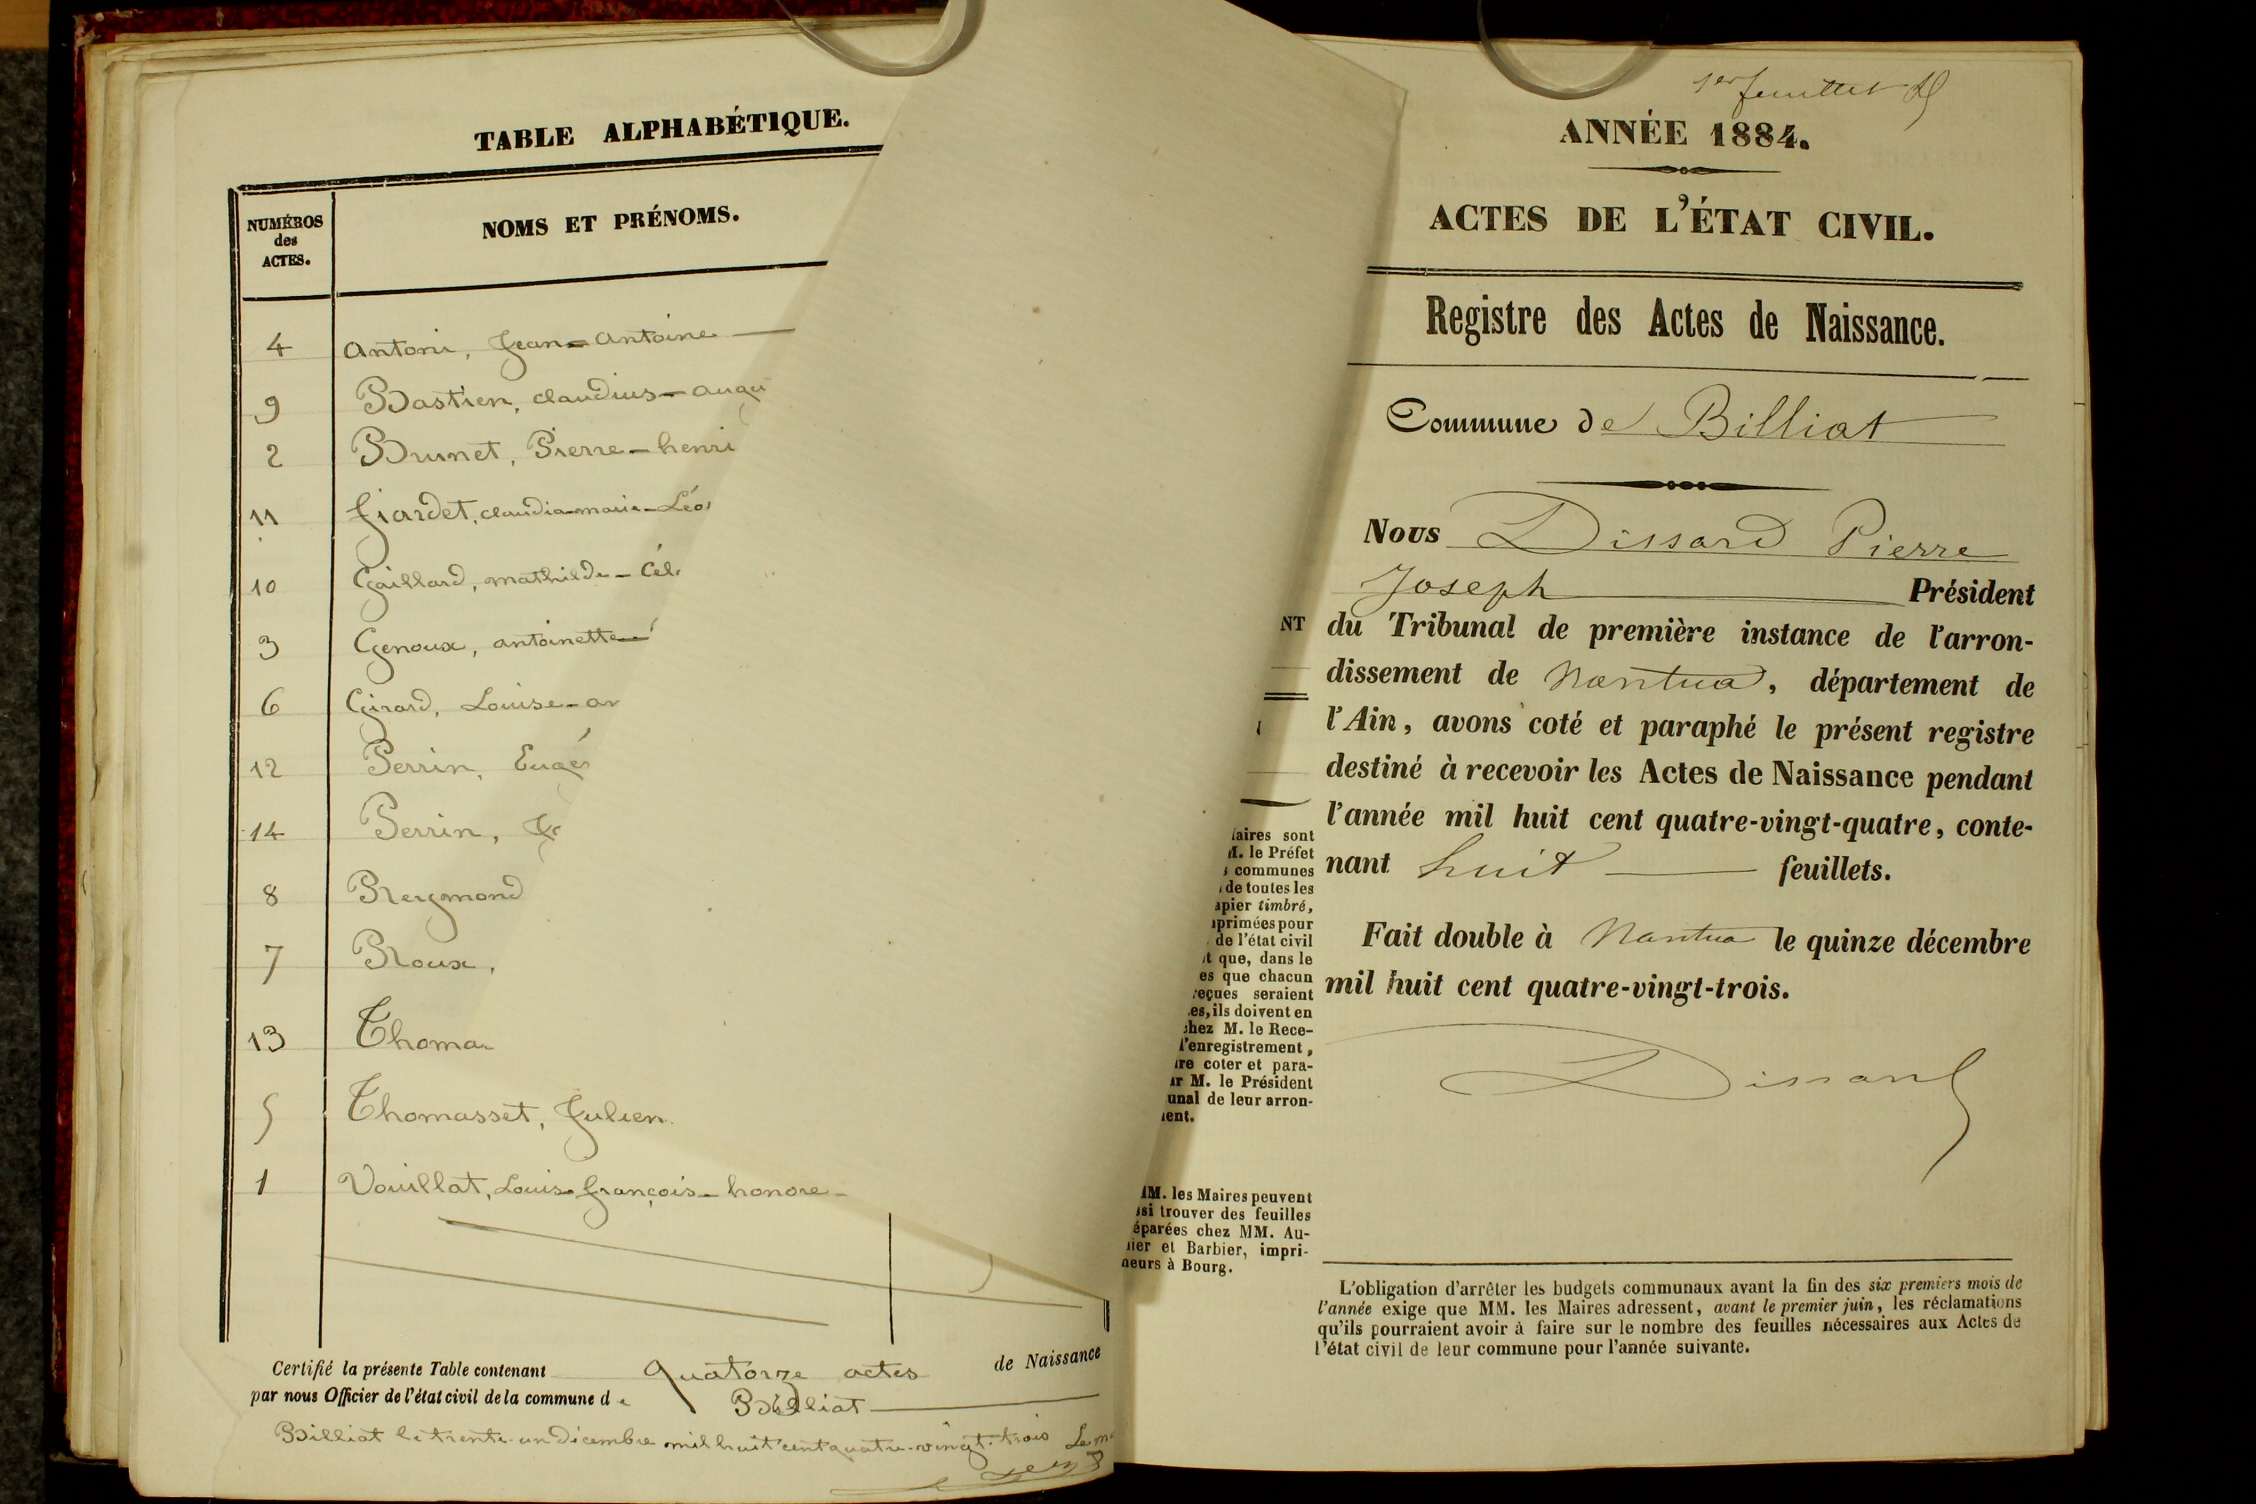 TABLE ALPHABÉTIQUE.
NUMÉROS
des
ACTES.
NOMS ET PRÉNOMS.
4 Antoni, Jean-Antoine
9 Bastien, claudius-augu
2 Brunet, Pierre-henri
11 fiardet, claudia-marie-Léo
10 Gaillard, mathilde-Cél
3 Genoux, antoinette
6 Girard, Louise-an
12 Perrin, Eugé
14 Perrin,
8 Reymond
7 Roux,
13 Thoma
5 Thomasset, Julien
1 Vouillat, Louis françois-honore
Certifié la présente Table contenant quatorze actes de Naissance
par nous Officier de l'état civil de la commune de Billiat
Billiat le trente-un décembre mil huit cent quatre-vingt-trois Le m
NT
aires sont
M. le Préfet
communes
de toutes les
apier timbré,
primées pour
de l'état civil
t que, dans le
es que chacun
reçues seraient
es, ils doivent en
chez M. le Rece-
l'enregistrement,
re coter et para-
ar M. le Président
unal de leur arron-
ent.
MM. les Maires peuvent
ssi trouver des feuilles
éparées chez MM. Au-
ier et Barbier, impri-
meurs à Bourg.
1er feuillet
ANNÉE 1884.
ACTES DE L'ÉTAT CIVIL.
Registre des Actes de Naissance.
Commune de Billiat
Nous Dissard Pierre
Joseph Président
du Tribunal de première instance de l'arron-
dissement de Nantua, département de
l'Ain, avons coté et paraphé le présent registre
destiné à recevoir les Actes de Naissance pendant
l'année mil huit cent quatre-vingt-quatre, conte-
nant huit feuillets.
Fait double à Nantua le quinze décembre
mil huit cent quatre-vingt-trois.
Dissard
L'obligation d'arrêter les budgets communaux avant la fin des six premiers mois de
l'année exige que MM. les Maires adressent, avant le premier juin, les réclamations
qu'ils pourraient avoir à faire sur le nombre des feuilles nécessaires aux Actes de
l'état civil de leur commune pour l'année suivante.